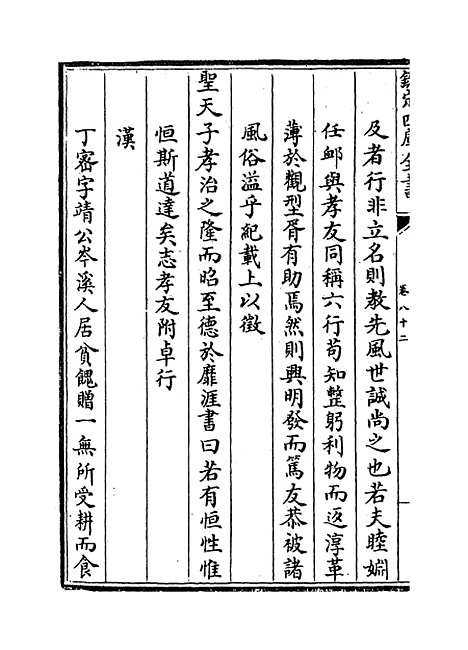 欽定四庫全書
卷八十二
及者行非立名則教先風世誠尚之也若夫睦婣
任䘏與孝友同稱六行苟知整躬利物而返淳革
薄於觀型胥有助焉然則興明發而篤友恭被諸
風俗溢乎紀載上以徵
聖天子孝治之隆而昭至德於靡涯書曰若有恒性惟
恒斯道達矣志孝友附卓行
漢
丁密字靖公岑溪人居貧餽贈一無所受耕而食